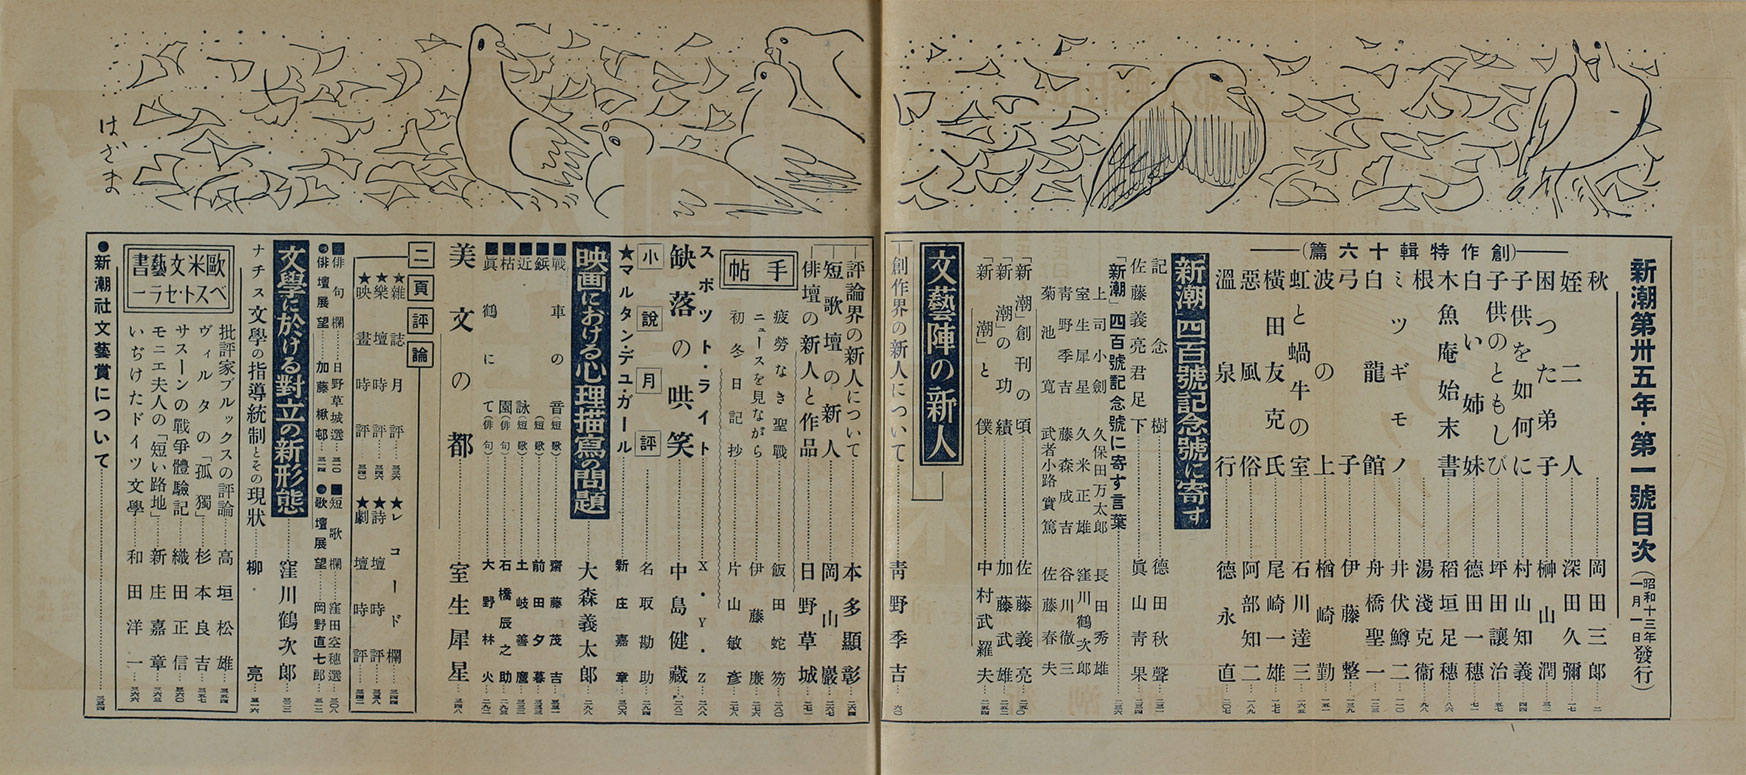 新潮第卅五年・第一號目次
（昭和十三年一月一日發行）
（創作特輯十六篇）
秋 岡田三郎
姪二人 深田久彌
困つた弟子 榊山潤
子供を如何に 村山知義
子供のともしび 坪田讓治
白い姉妹 德田一穗
木魚庵始末書 稻垣足穗
根 湯淺克衞
ミツギモノ 井伏鱒二
白龍館 舟橋聖一
弓子 伊藤整
波の上 檜崎勤
虹と蝸牛の室 石川達三
橫田友克氏 尾崎一雄
惡風俗 阿部知二
溫泉行 德永直
新潮四百號記念號に寄す
記念樹 德田秋聲
佐藤義亮君足下 眞山靑果
「新潮」四百號記念號に寄す言葉
上司小劍 久保田万太郎 長田秀雄
室生犀星 久米正雄 窪川鶴次郎
靑野季吉 藤森成吉 谷川徹三
菊池寬 武者小路實篤 佐藤春夫
「新潮」創刊の頃 佐藤義亮
「新潮」の功績 加藤武雄
「新潮」と僕 中村武羅夫
文藝陣の新人
創作界の新人について 靑野季吉
評論界の新人について 本多顯彰
短歌壇の新人 岡山巖
俳壇の新人と作品 日野草城
手帖
疲勞なき聖戰 飯田蛇笏
ニュースを見ながら 伊藤廉
初冬日記抄 片山敏彥
スポット・ライト X・Y・Z
缺落の哄笑 中島健藏
小說月評 名取勘助
★マルタン・デュ・ガール 新庄嘉章
映画における心理描寫の問題 大森義太郎
■戰車の音（短歌） 齋藤茂吉
■鋲（短歌） 前田夕暮
■近詠（短歌） 土岐善麿
■枯園（俳句） 石橋辰之助
■眞鶴にて（俳句） 大野林火
美文の都 室生犀星
三頁評論
★雜誌月評 ★レコード欄
★樂壇時評 ★詩壇時評
★映畫時評 ★劇壇時評
■俳句欄 日野草城選 ■短歌欄 窪田空穗選
●俳壇展望 加藤楸邨 ●歌壇展望 岡野直七郎
文學に於ける對立の新形態 窪川鶴次郎
ナチス文學の指導統制とその現狀 柳亮
歐米文藝書ベスト・セラー
批評家ブルックスの評論 高垣松雄
ヴィルタの「孤獨」 杉本良吉
サスーンの戰爭體驗記 織田正信
モニエ夫人の「短い路地」 新庄嘉章
いぢけたドイツ文學 和田洋一
●新潮社文藝賞について
はざま